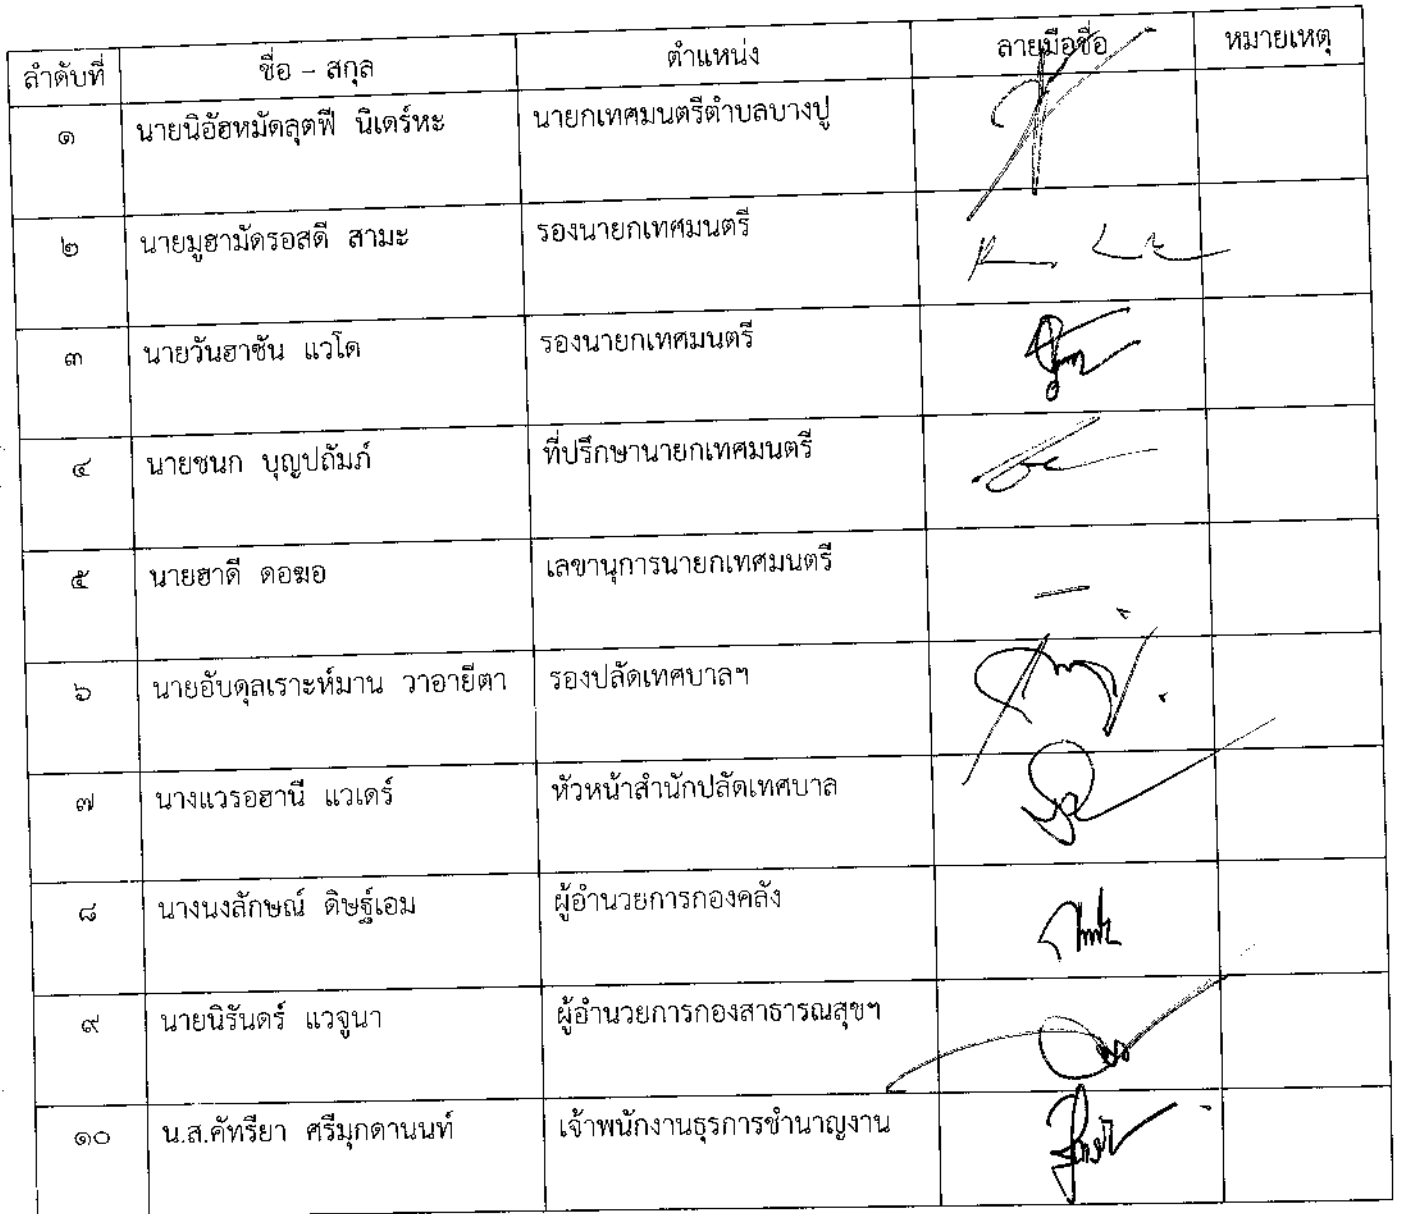 ลำดับที่ ชื่อ - สกุล ตำแหน่ง ลายมือชื่อ หมายเหตุ
๑ นายนิอัฮหมัดลุตฟี นิเดร์หะ นายกเทศมนตรีตำบลบางปู
๒ นายมูฮามัดรอสดี สามะ รองนายกเทศมนตรี
๓ นายวันฮาซัน แวโด รองนายกเทศมนตรี
๔ นายชนก บุญปถัมภ์ ที่ปรึกษานายกเทศมนตรี
๕ นายฮาดี ดอฆอ เลขานุการนายกเทศมนตรี
๖ นายอับดุลเราะห์มาน วาอายีตา รองปลัดเทศบาลฯ
๗ นางแวรอฮานี แวเดร์ หัวหน้าสำนักปลัดเทศบาล
๘ นางนงลักษณ์ ดิษฐ์เอม ผู้อำนวยการกองคลัง
๙ นายนิรันดร์ แวจูนา ผู้อำนวยการกองสาธารณสุขฯ
๑๐ น.ส.คัทรียา ศรีมุกดานนท์ เจ้าพนักงานธุรการชำนาญงาน